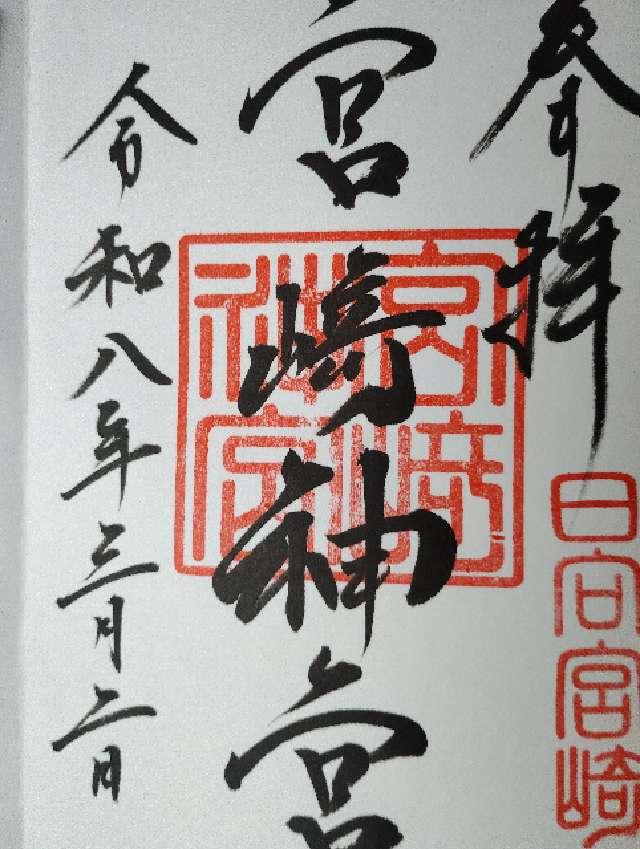 奉拝
日向宮崎
宮崎神宮
宮崎神宮
令和八年三月二日